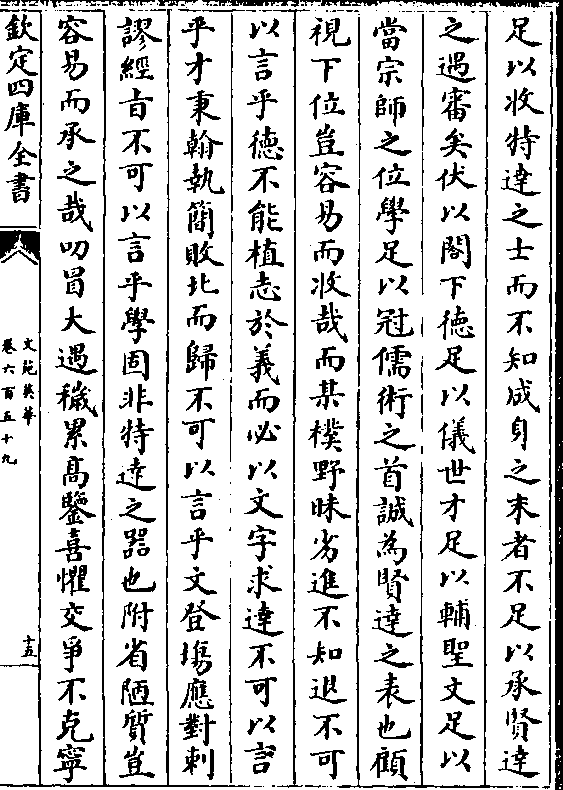 足以收特達之士而不知成身之末者不足以承賢達
之遇審矣伏以閤下德足以儀世才足以輔聖文足以
當宗師之位學足以冠儒術之首誠為賢達之表也顧
視下位豈容易而收哉而某樸野昧劣進不知退不可
以言乎德不能植志於義而必以文字求達不可以言
乎才秉翰執簡敗北而歸不可以言乎文登塲應對刺
謬經旨不可以言乎學固非特達之器也附省陋質豈
容易而承之哉叨冒大遇穢累高鑒喜懼交爭不克寧
欽定四庫全書
文苑英華
卷六百五十九
十五